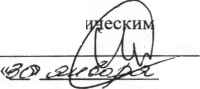 ическим
«30» января